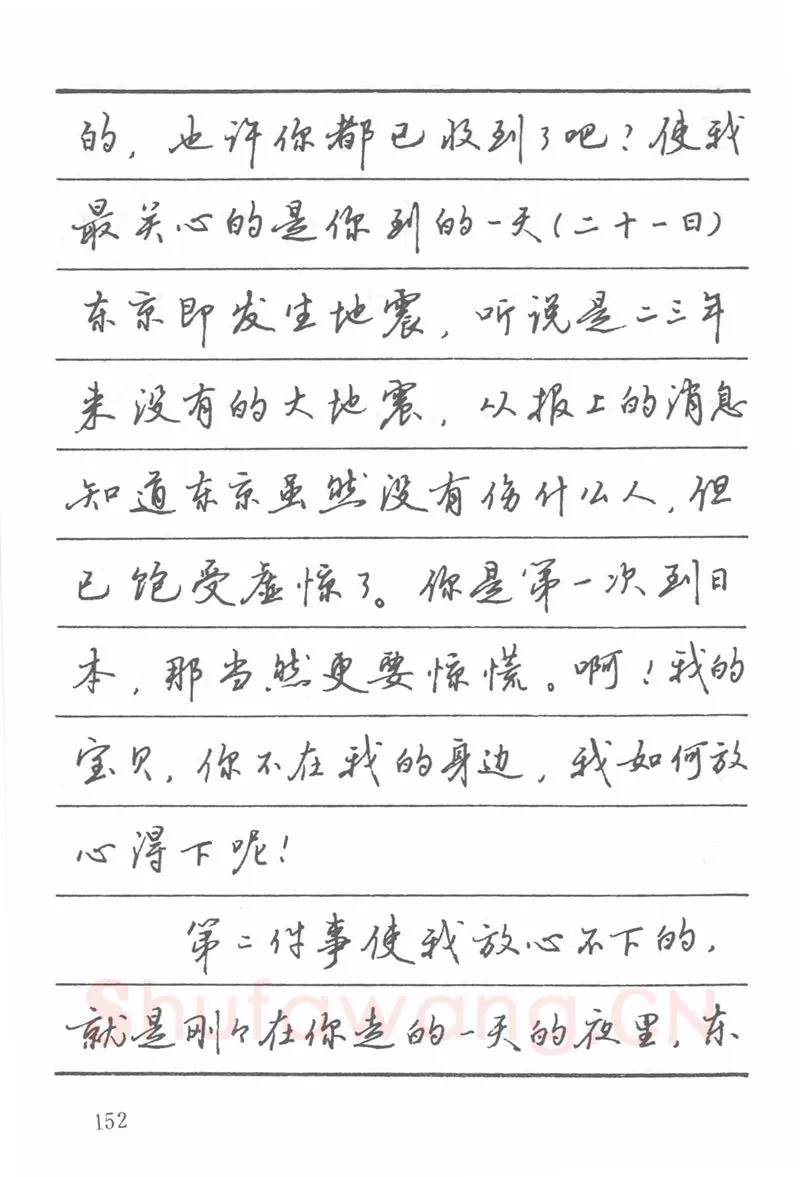 的，也许你都已收到了吧？使我
最关心的是你到的一天（二十一日）
东京即发生地震，听说是二三年
来没有的大地震，从报上的消息
知道东京虽然没有伤什么人，但
已饱受虚惊了。你是第一次到日
本，那当然更要惊慌。啊！我的
宝贝，你不在我的身边，我如何放
心得下呢！
第二件事使我放心不下的，
就是刚々在你走的一天的夜里，东
Shufawang.CN
152